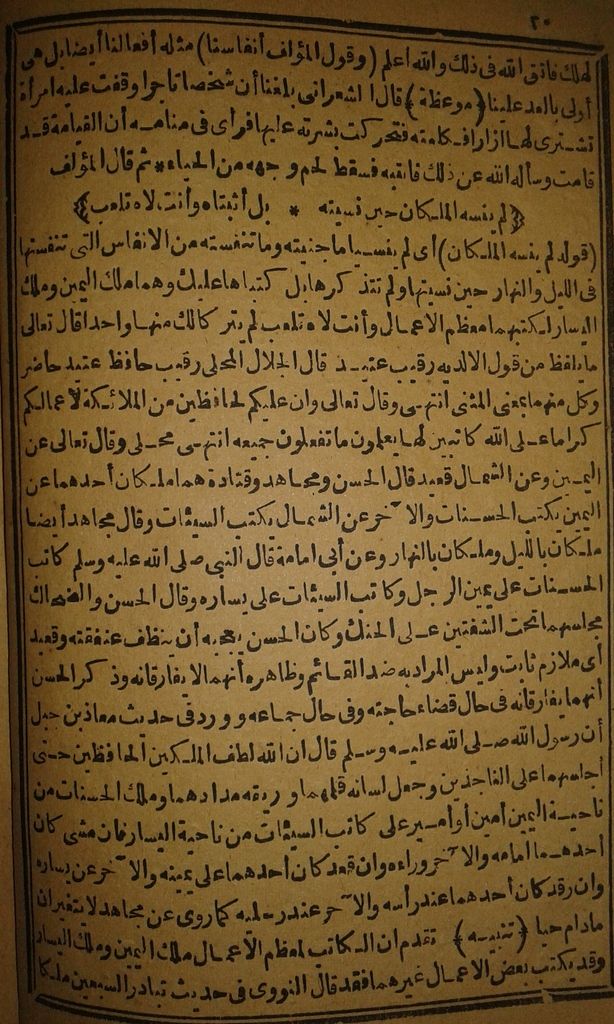 ٢٠
لهلك فاتق الله فى ذلك والله اعلم (وقول المؤلف أنفاسنا) مثله أفعالنا أيضا بل هى
أولى بالعد علينا (موعظة) قال الشعرانى بلغنا أن شخصا تاجرا وقفت عليه امرأة
تشترى لها ازارا فكلمته فتحركت بشرته عليها فرأى فى منامه أن القيامة قد
قامت وسأله الله عن ذلك فانتبه فسقط لحم وجهه من الحياء * ثم قال المؤلف
﴿لم ينسه الملكان حين نسيته * بل أثبتاه وأنت لاه تلعب﴾
(قوله لم ينسه الملكان) أى لم ينسيا ما جنيته وما تنفسته من الانفاس التى تنفستها
فى الليل والنهار حين نسيتها ولم تتذكرها بل كتباها عليك وهما ملك اليمين وملك
اليسار لكتبهما معظم الاعمال وأنت لاه تلعب لم يتركا لك منها واحدا قال تعالى
ما يلفظ من قول الا لديه رقيب عتيد قال الجلال المحلى رقيب حافظ عتيد حاضر
وكل منهما بمعنى المثنى انتهى وقال تعالى وان عليكم لحافظين من الملائكة لاعمالكم
كراما على الله كاتبين لها يعلمون ما تفعلون جميعه انتهى محلى وقال تعالى عن
اليمين وعن الشمال قعيد قال الحسن ومجاهد وقتادة هما ملكان أحدهما عن
اليمين يكتب الحسنات والآخر عن الشمال يكتب السيئات وقال مجاهد أيضا
ملكان بالليل وملكان بالنهار وعن أبى امامة قال النبى صلى الله عليه وسلم كاتب
الحسنات على يمين الرجل وكاتب السيئات على يساره وقال الحسن والضحاك
مجلسهما تحت الشفتين على الحنك وكان الحسن يعجبه أن ينظف عنفقته وقعيد
أى ملازم ثابت وليس المراد به ضد القائم وظاهره أنهما لا يفارقانه وذكر الحسن
أنهما يفارقانه فى حال قضاء حاجته وفى حال جماعه وورد فى حديث معاذ بن جبل
أن رسول الله صلى الله عليه وسلم قال ان الله لطف الملكين الحافظين حتى
أجلسهما على الناجذين وجعل لسانه قلمهما وريقه مدادهما وملك الحسنات من
ناحية اليمين أمين أو أمير على كاتب السيئات من ناحية اليسار فان مشى كان
أحدهما أمامه والآخر وراءه وان قعد كان أحدهما على يمينه والآخر عن يساره
وان رقد كان أحدهما عند رأسه والآخر عند رجليه كما روى عن مجاهد لا يتغيران
مادام حيا (تنبيه) تقدم ان الكاتب لمعظم الاعمال ملك اليمين وملك اليسار
وقد يكتب بعض الاعمال غيرهما فقد قال النووى فى حديث تبادر السبعين ملكا